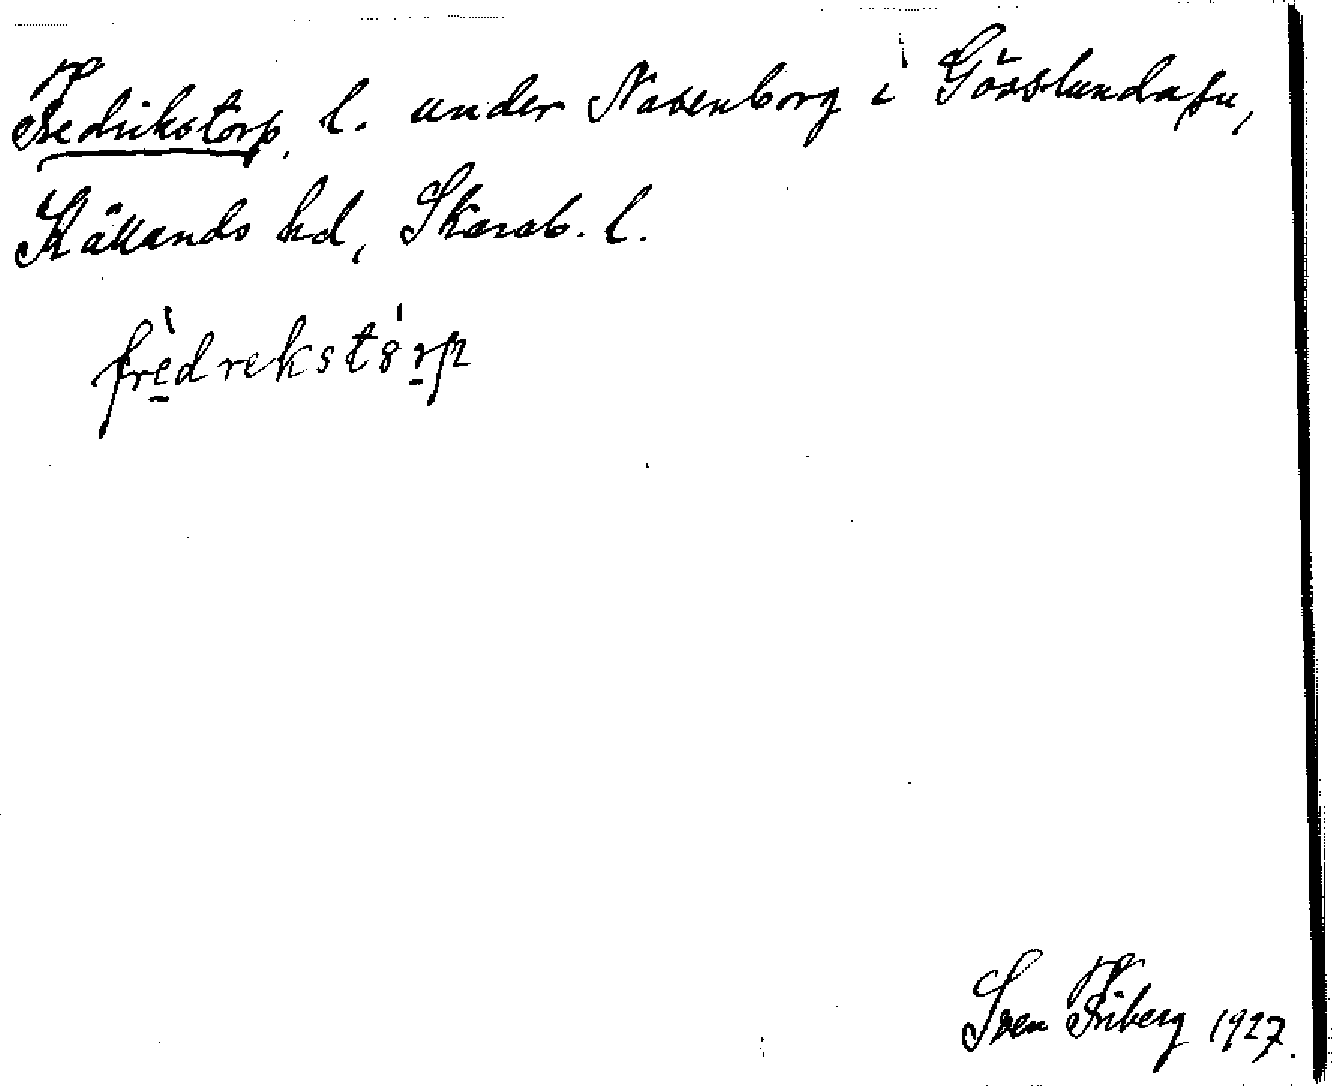 Fredrikstorp, l. under Nasenborg i Gösslunda sn,
Kållands hd, Skarab. l.
frèdrekstórp
Sven Friberg 1927.